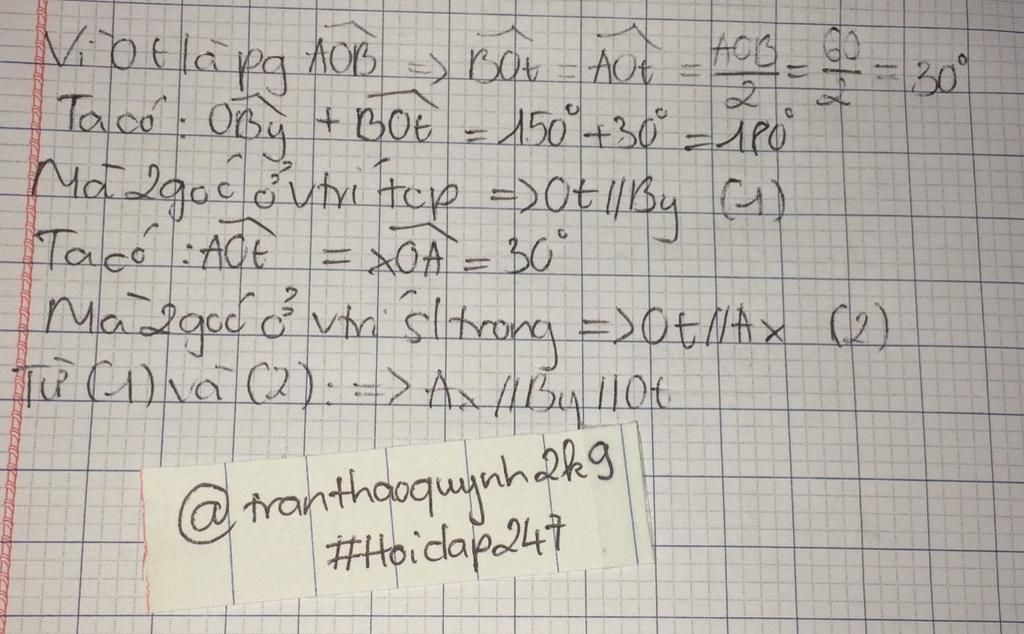 Vì Ot là pg AOB => BOt = AOt = AOB/2 = 60/2 = 30°
Ta có: OBy + BOt = 150° + 30° = 180°
Mà 2 góc ở vtrí tcp => Ot // By (1)
Ta có: AOt = xOA = 30°
Mà 2 góc ở vtrí sltrong => Ot // Ax (2)
Từ (1) và (2): => Ax // By // Ot
@tranthaoquynh2k9
#Hoidap247